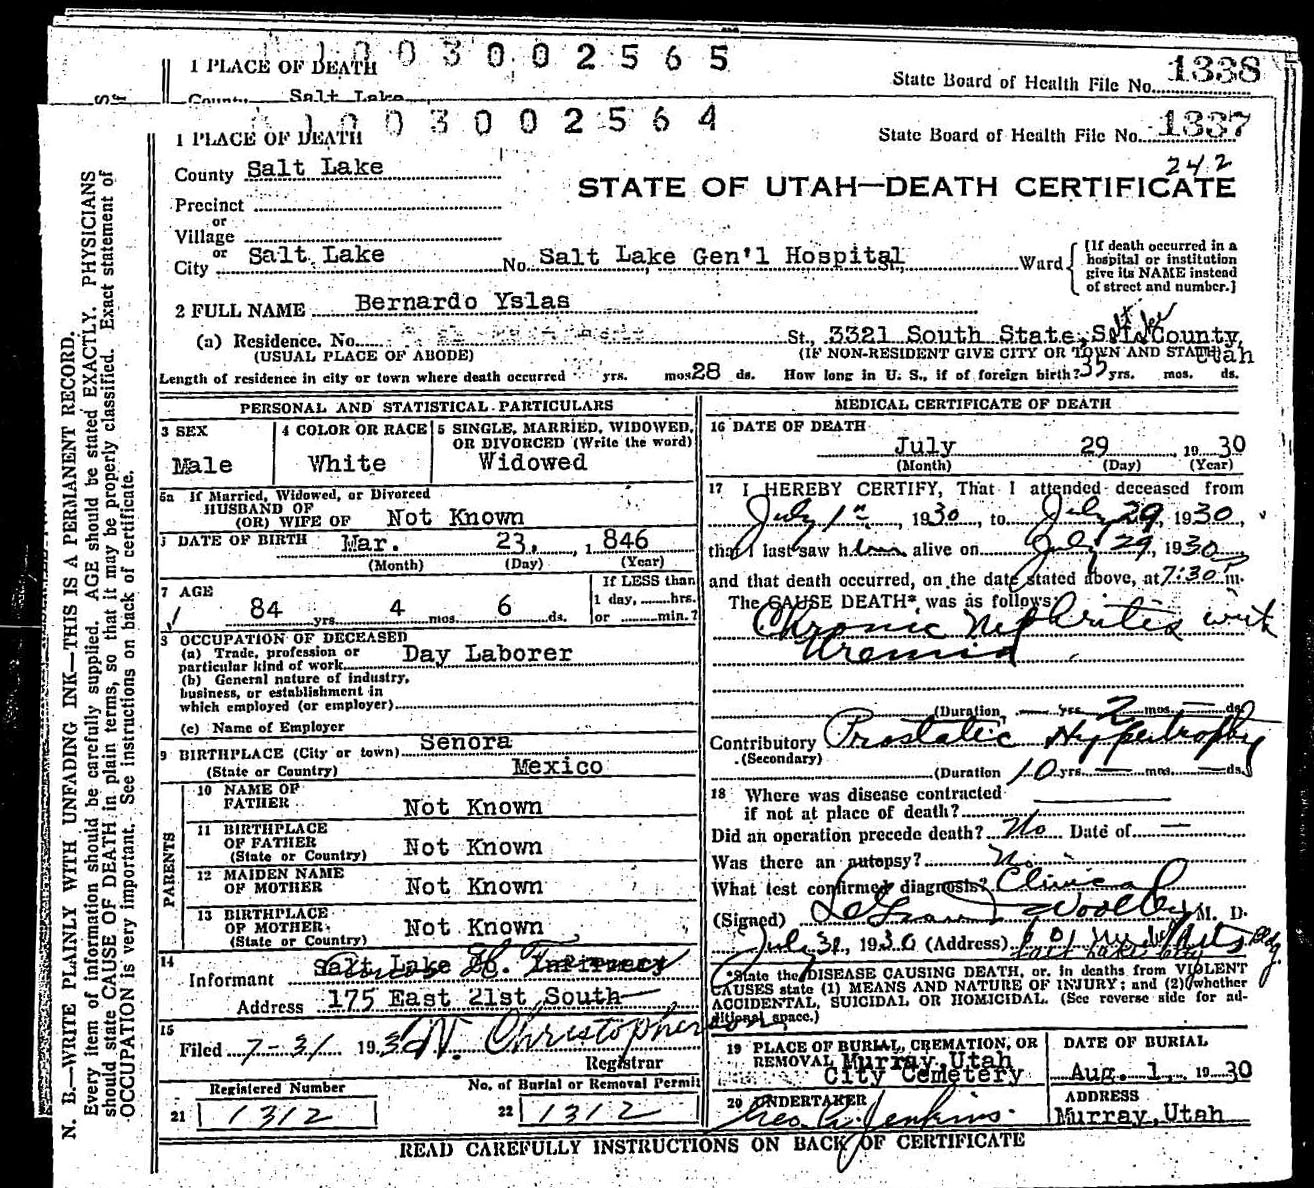 1003002565
1 PLACE OF DEATH
State Board of Health File No. 1338
County Salt Lake
1003002564
1 PLACE OF DEATH
State Board of Health File No. 1337
242
County Salt Lake
STATE OF UTAH—DEATH CERTIFICATE
Precinct
or
Village
or
City Salt Lake No. Salt Lake Gen'l Hospital Ward
[If death occurred in a
hospital or institution
give its NAME instead
of street and number.]
2 FULL NAME Bernardo Yslas
(a) Residence. No. St., 3321 South State, Salt Lake County,
Utah
(USUAL PLACE OF ABODE) (IF NON-RESIDENT GIVE CITY OR TOWN AND STATE)
Length of residence in city or town where death occurred yrs. mos. 28 ds. How long in U. S., if of foreign birth? 35 yrs. mos. ds.
PERSONAL AND STATISTICAL PARTICULARS
3 SEX
Male
4 COLOR OR RACE
White
5 SINGLE, MARRIED, WIDOWED,
OR DIVORCED (Write the word)
Widowed
5a If Married, Widowed, or Divorced
HUSBAND OF
(OR) WIFE OF Not Known
DATE OF BIRTH Mar. 23, 1 846
(Month) (Day) (Year)
7 AGE
84 yrs. 4 mos. 6 ds.
If LESS than
1 day, ......hrs.
or ......min.?
8 OCCUPATION OF DECEASED
(a) Trade, profession or
particular kind of work Day Laborer
(b) General nature of industry,
business, or establishment in
which employed (or employer)
(c) Name of Employer
9 BIRTHPLACE (City or town) Senora
(State or Country) Mexico
PARENTS
10 NAME OF
FATHER Not Known
11 BIRTHPLACE
OF FATHER Not Known
(State or Country)
12 MAIDEN NAME
OF MOTHER Not Known
13 BIRTHPLACE
OF MOTHER Not Known
(State or Country)
14
Informant Salt Lake Co. Infirmery
Address 175 East 21st South
15
Filed 7-31 1930 Christopherson
Registrar
Registered Number
21 1312
No. of Burial or Removal Permit
22 1312
MEDICAL CERTIFICATE OF DEATH
16 DATE OF DEATH
July 29 , 19 30
(Month) (Day) (Year)
17 I HEREBY CERTIFY, That I attended deceased from
July 1st, 1930, to July 29, 1930,
that I last saw him alive on July 29, 1930
and that death occurred, on the date stated above, at 7:30 P m.
The CAUSE DEATH*, was as follows:
Chronic Nephritis with
Uremia
(Duration — yrs. 2 mos. — ds.
Contributory Prostatic Hypertrophy
(Secondary)
(Duration 10 yrs. — mos. — ds.
18 Where was disease contracted
if not at place of death?
Did an operation precede death? No Date of —
Was there an autopsy? No
What test confirmed diagnosis? Clinical
(Signed) Woolley M. D.
July 31, 1930 (Address) Bldg.
Salt Lake City
*State the DISEASE CAUSING DEATH, or, in deaths from VIOLENT
CAUSES state (1) MEANS AND NATURE OF INJURY; and (2) whether
ACCIDENTAL, SUICIDAL OR HOMICIDAL. (See reverse side for ad-
ditional space.)
19 PLACE OF BURIAL, CREMATION, OR
REMOVAL Murray, Utah
City Cemetery
DATE OF BURIAL
Aug. 1, 19 30
20 UNDERTAKER
Geo. Jenkins.
ADDRESS
Murray, Utah
READ CAREFULLY INSTRUCTIONS ON BACK OF CERTIFICATE
N. B.—WRITE PLAINLY WITH UNFADING INK—THIS IS A PERMANENT RECORD.
Every item of information should be carefully supplied. AGE should be stated EXACTLY. PHYSICIANS
should state CAUSE OF DEATH in plain terms, so that it may be properly classified. Exact statement of
OCCUPATION is very important. See instructions on back of certificate.